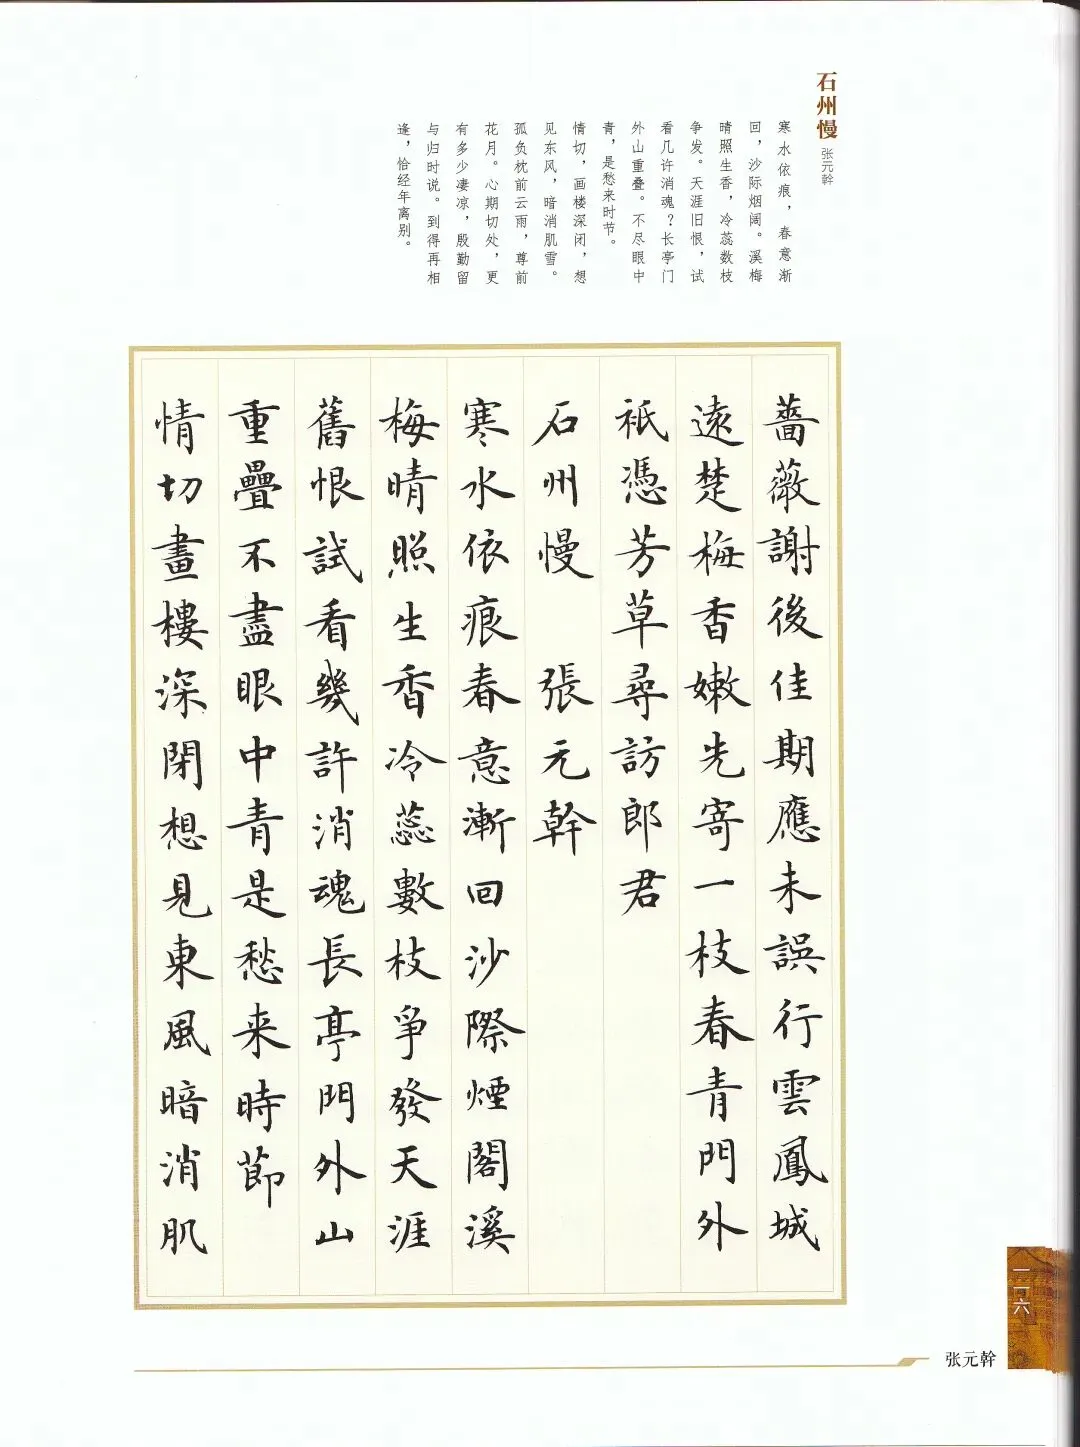 石州慢
张元幹
寒水依痕，春意渐
回，沙际烟阔。溪梅
晴照生香，冷蕊数枝
争发。天涯旧恨，试
看几许消魂？长亭门
外山重叠。不尽眼中
青，是愁来时节。
情切，画楼深闭，想
见东风，暗消肌雪。
孤负枕前云雨，尊前
花月。心期切处，更
有多少凄凉，殷勤留
与归时说。到得再相
逢，恰经年离别。
薔薇謝後佳期應未誤行雲鳳城
遠楚梅香嫩先寄一枝春青門外
祇憑芳草尋訪郎君
石州慢 張元幹
寒水依痕春意漸回沙際煙閣溪
梅晴照生香冷蕊數枝爭發天涯
舊恨試看幾許消魂長亭門外山
重疊不盡眼中青是愁来時節
情切畫樓深閉想見東風暗消肌
一一六
张元幹